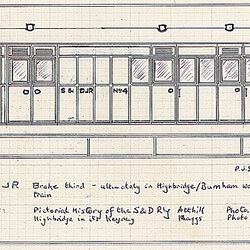 S & DJR No 4
P.J.S
JR Brake third - ultimately in Highbridge/Burnham wo
train
: Pictorial History of the S&D RLY Atthill Photo.
Highbridge in its Heyday Photo